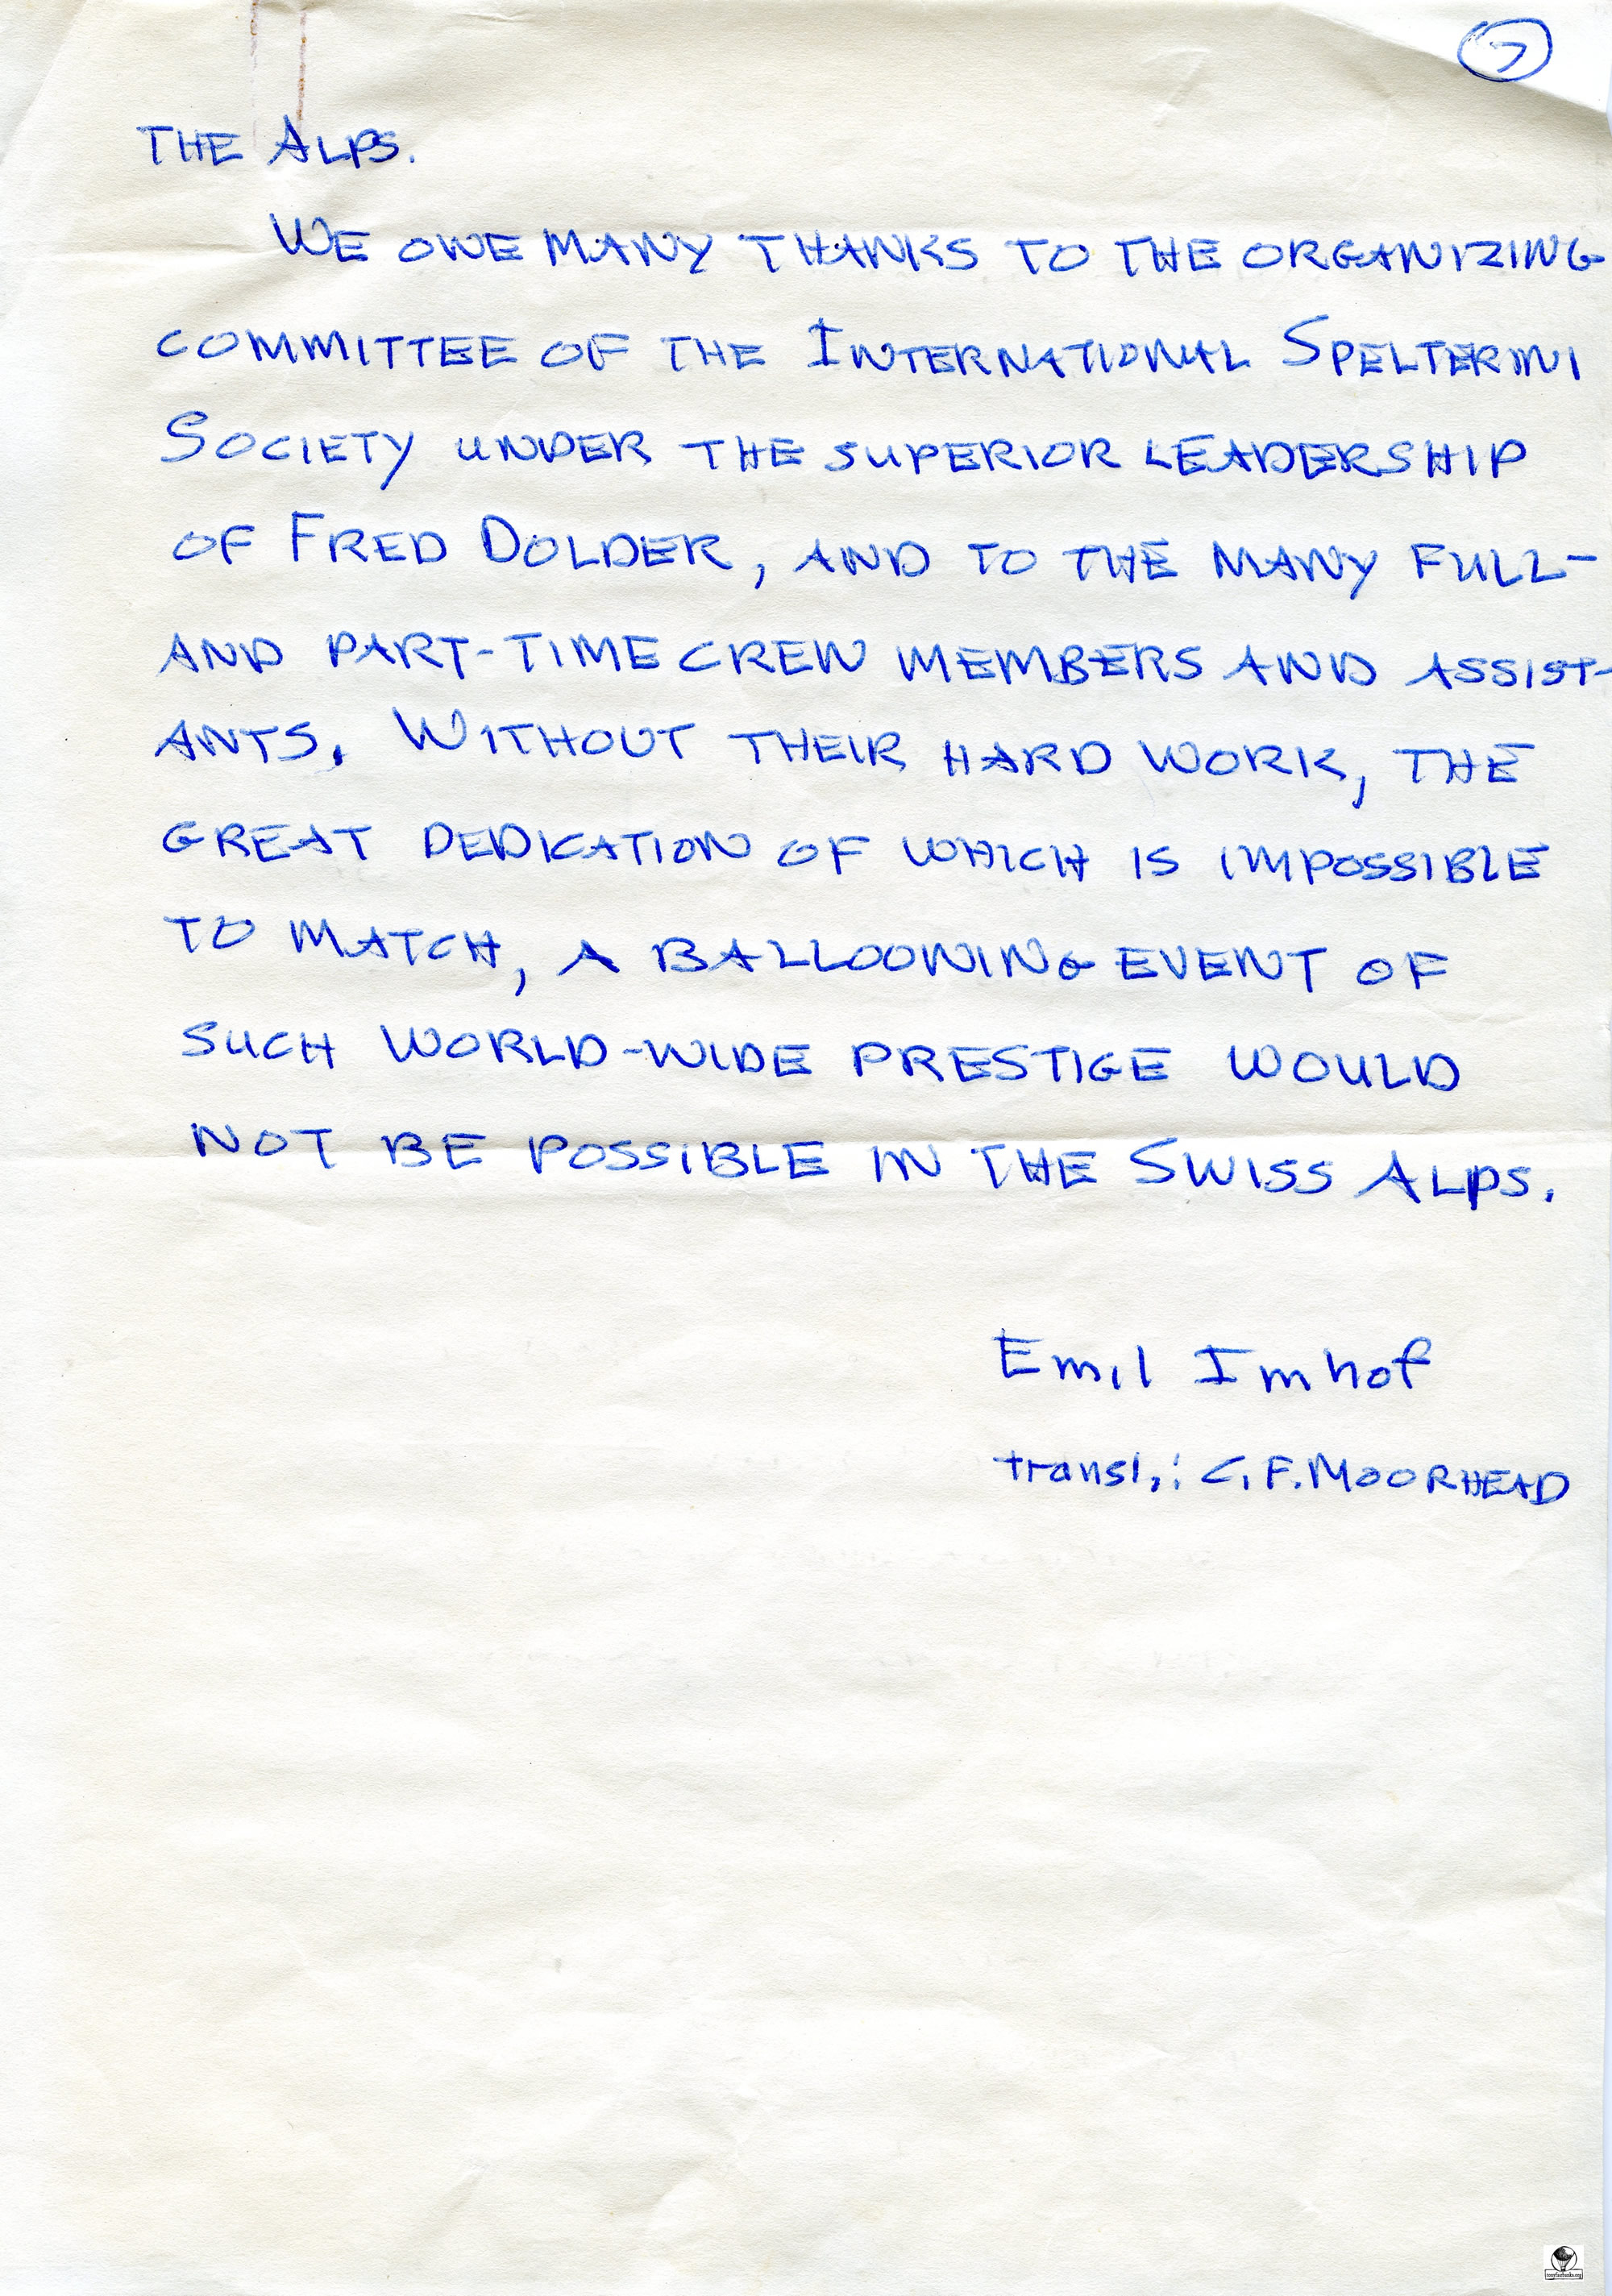 7
THE ALPS.
WE OWE MANY THANKS TO THE ORGANIZING
COMMITTEE OF THE INTERNATIONAL SPELTERINI
SOCIETY UNDER THE SUPERIOR LEADERSHIP
OF FRED DOLDER, AND TO THE MANY FULL-
AND PART-TIME CREW MEMBERS AND ASSIST-
ANTS. WITHOUT THEIR HARD WORK, THE
GREAT DEDICATION OF WHICH IS IMPOSSIBLE
TO MATCH, A BALLOONING EVENT OF
SUCH WORLD-WIDE PRESTIGE WOULD
NOT BE POSSIBLE IN THE SWISS ALPS.
Emil Imhof
transl.: C.F. MOORHEAD